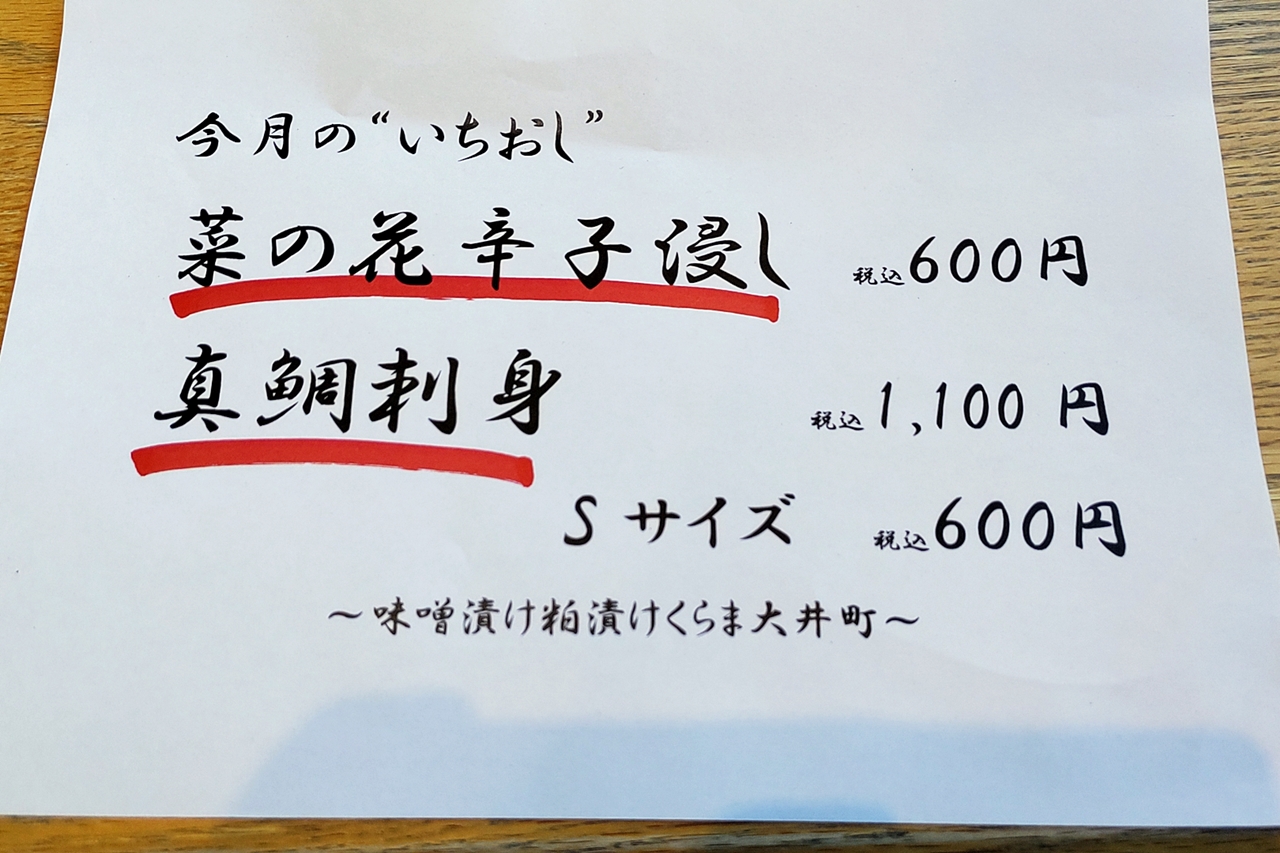 今月の“いちおし”
菜の花辛子浸し 税込600円
真鯛刺身 税込1,100円
Sサイズ 税込600円
～味噌漬け粕漬けくらま大井町～